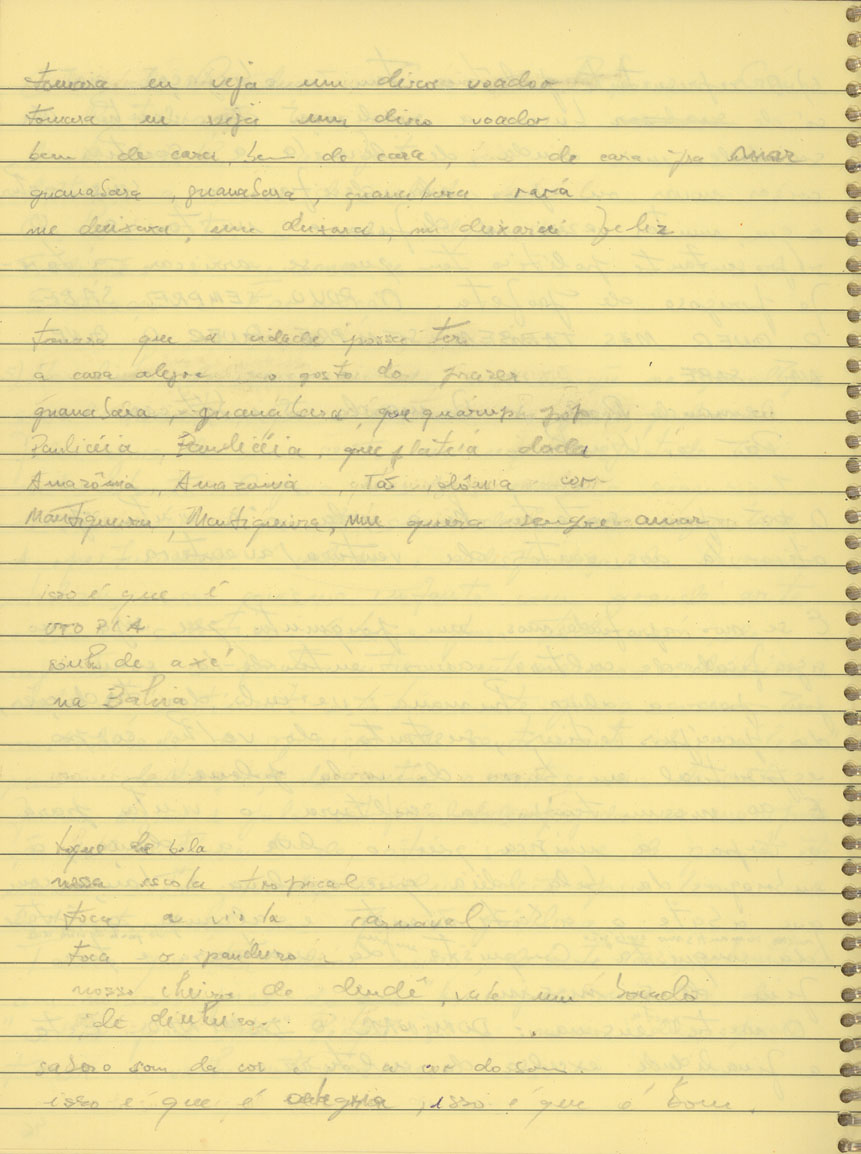 tomara eu veja um disco voador
tomara eu veja um disco voador
bem de cara, bem de cara, de cara pra amar
guanabara, guanabara, guanabara rará
me deixara, me deixara, me deixará feliz
tomara que a cidade possa ter
a cara alegre o gosto do prazer
guanabara, guanabara, que quarup pop
Paulicéia, Paulicéia, que platéia dada
Amazônia, Amazonia, tás idônia cor
Mantiqueira, Mantiqueira, me queira sempre amar
isso é que é
UTOPIA
sonho de axé
na Bahia
toque de bola
nessa escola tropical
toca a vida carnaval
toca o pandeiro
nosso cheiro de dendê, vale um bocado
de dinheiro.
sabor o som da cor a cor do som
isso é que é alegria, isso é que é bom.